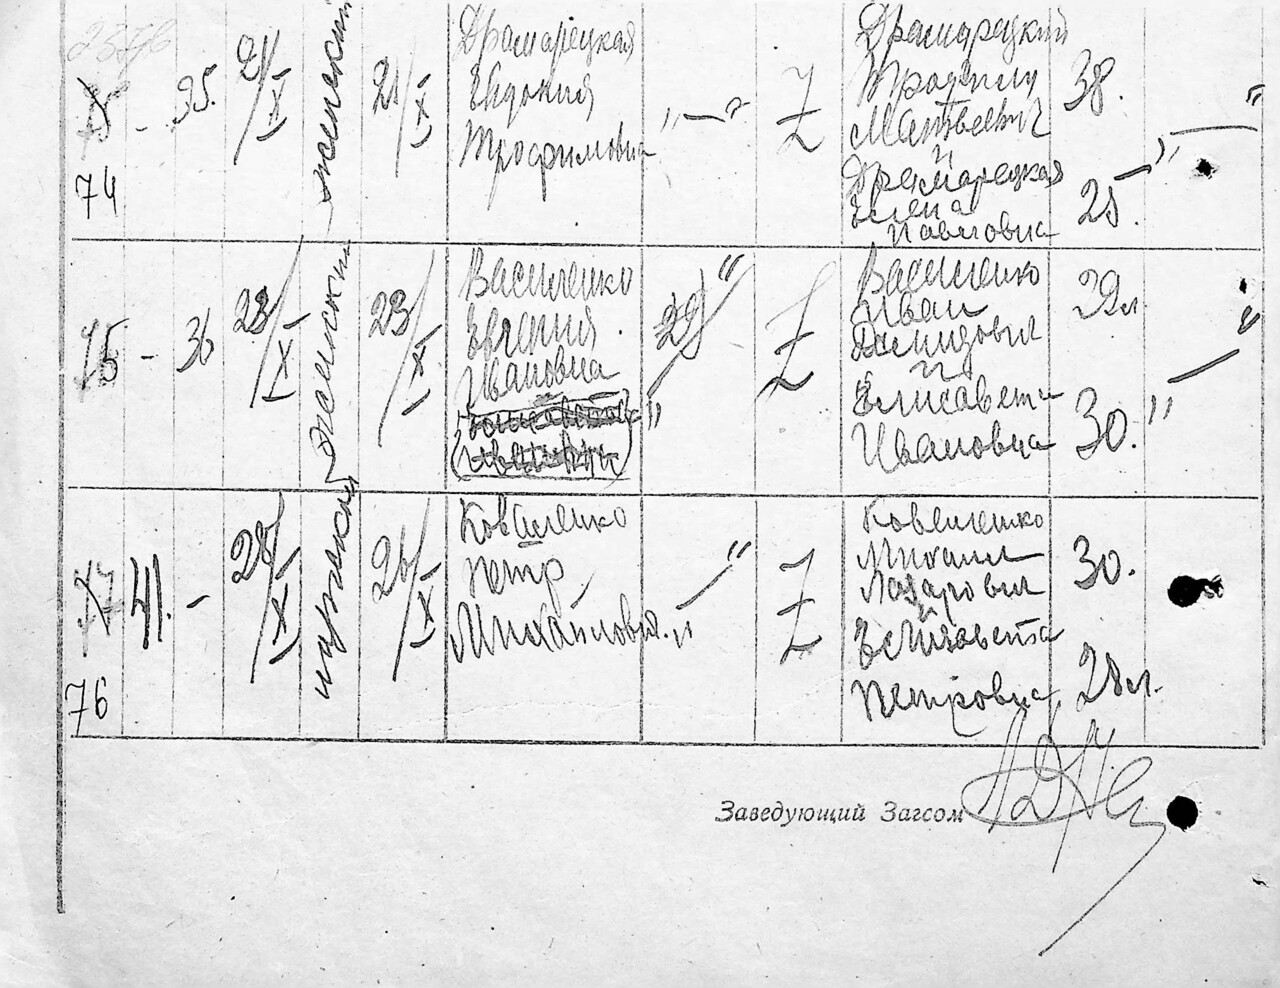 74
35.
21/IX
женский
21/IX
Драмарецкая
Евдокия
Трофимовна
"—"
Z
Драмарецкий
Трофим
Матвеевич
и
Драмарецкая
Елена
Павловна
38.
25.
"—"
75 - 36
23/IX
женский
23/IX
Василенко
Евгения
Ивановна
"—"
Z
Василенко
Иван
Демидович
и
Елисавета
Ивановна
32л.
30.
"—"
76
41. -
28/IX
мужской
26/IX
Коваленко
Петр
Михайлович.
"—"
Z
Коваленко
Михаил
Лазарович
и
Елизавета
Петровна
30.
28л.
Заведующий Загсом